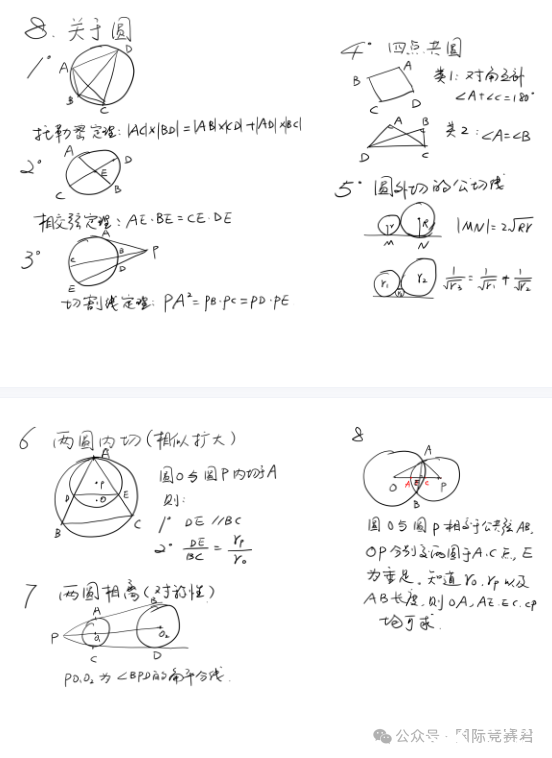 8. 关于圆
1°
A
D
B
C
托勒密定理: |AC|×|BD| = |AB|×|CD| + |AD|×|BC|
2°
A
D
E
C
B
相交弦定理: AE·BE = CE·DE
3°
A
B
P
C
D
E
切割线定理: PA² = PB·PC = PD·PE
4° 四点共圆
A
B
C
D
类1: 对角互补
∠A+∠C=180°
A
B
D
C
类2: ∠A=∠B
5° 圆外切的公切线
r
R
M
N
|MN| = 2√Rr
r₁
r₂
1/√r₃ = 1/√r₁ + 1/√r₂
6 两圆内切(相似扩大)
A
P
D
O
E
B
C
圆O与圆P内切于A
则:
1° DE // BC
2° DE/BC = rₚ/r₀
7 两圆相离(对称性)
A
B
P
O₁
O₂
C
D
PO₁O₂ 为∠BPD的角平分线.
8
A
O
A
E
C
P
B
圆O与圆P相交于公共弦AB,
OP分别交两圆于A.C点, E
为垂足. 知道r₀, rₚ以及
AB长度, 则OA, AE. EC. CP
均可求.
公众号 · 国际竞赛君